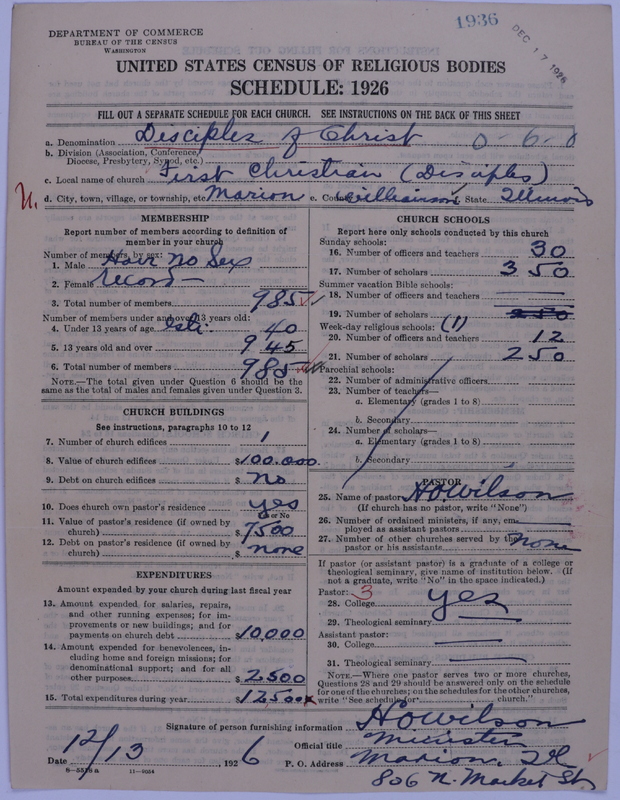 1936
DEC 17 1926
DEPARTMENT OF COMMERCE
BUREAU OF THE CENSUS
WASHINGTON
UNITED STATES CENSUS OF RELIGIOUS BODIES
SCHEDULE: 1926
FILL OUT A SEPARATE SCHEDULE FOR EACH CHURCH. SEE INSTRUCTIONS ON THE BACK OF THIS SHEET
a. Denomination Disciples of Christ 0-6-0
b. Division (Association, Conference, Diocese, Presbytery, Synod, etc.)
c. Local name of church First Christian (Disciples)
U. d. City, town, village, or township, etc. Marion e. County Williamson f. State Illinois
MEMBERSHIP
Report number of members according to definition of member in your church
Number of members, by sex:
1. Male Have no Sex
2. Female record
3. Total number of members 985
Number of members under and over 13 years old:
4. Under 13 years of age esti. 40
5. 13 years old and over 945
6. Total number of members 985
NOTE.—The total given under Question 6 should be the same as the total of males and females given under Question 3.
CHURCH BUILDINGS
See instructions, paragraphs 10 to 12
7. Number of church edifices 1
8. Value of church edifices $100.000.
9. Debt on church edifices $ no
10. Does church own pastor's residence yes
Yes or No
11. Value of pastor's residence (if owned by church) $7500
12. Debt on pastor's residence (if owned by church) $ none
EXPENDITURES
Amount expended by your church during last fiscal year
13. Amount expended for salaries, repairs, and other running expenses; for improvements or new buildings; and for payments on church debt $10,000
14. Amount expended for benevolences, including home and foreign missions; for denominational support; and for all other purposes $2500
15. Total expenditures during year $12500 x
CHURCH SCHOOLS
Report here only schools conducted by this church
Sunday schools:
16. Number of officers and teachers 30
17. Number of scholars 350
Summer vacation Bible schools:
18. Number of officers and teachers
19. Number of scholars 250
Week-day religious schools: (1)
20. Number of officers and teachers 12
21. Number of scholars 250
Parochial schools:
22. Number of administrative officers
23. Number of teachers—
a. Elementary (grades 1 to 8)
b. Secondary
24. Number of scholars—
a. Elementary (grades 1 to 8)
b. Secondary
PASTOR
25. Name of pastor HOWilson
(If church has no pastor, write "None")
26. Number of ordained ministers, if any, employed as assistant pastors
27. Number of other churches served by the pastor or his assistants none
If pastor (or assistant pastor) is a graduate of a college or theological seminary, give name of institution below. (If not a graduate, write "No" in the space indicated.)
Pastor: 3
28. College yes
29. Theological seminary
Assistant pastor:
30. College
31. Theological seminary
NOTE.—Where one pastor serves two or more churches, Questions 28 and 29 should be answered only on the schedule for one of the churches; on the schedules for the other churches, write "See schedule for church."
Signature of person furnishing information HOWilson
Official title Minister
Date 12/13, 1926 P. O. Address Marion, Ill
806 N. Market St.
8-5518 a 11-9054